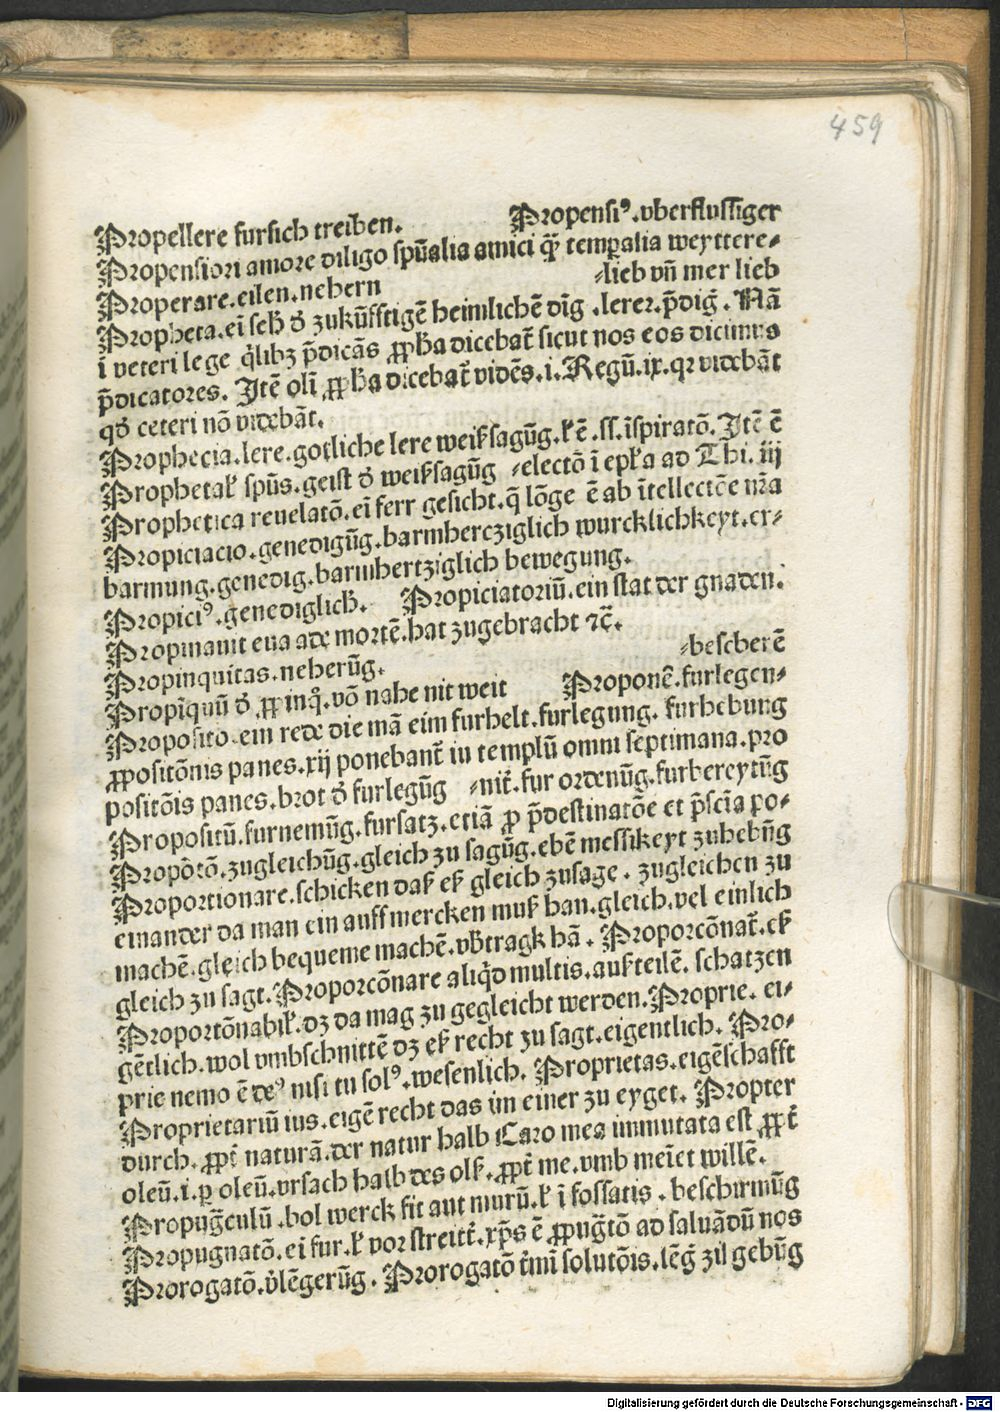 459
Propellere fursich treiben. Propensiꝰ.vberflussiger
Propensiori amore diligo spūalia amici q̄ temꝑalia weyttere⸗
Properare.eilen.nehern ⸗lieb vn̄ mer lieb
Propheta.ei seh d' zukūfftigē heimlichē dīg.lerer.p̄dig. Nā
ī veteri lege q̇libꝫ p̄dicās ꝓpha dicebat̄ sicut nos eos dicimus
p̄dicatores. Itē oli ꝓpha dicebat̄ vidēs.i.Regū.ix.qꝛ videbāt
qd' ceteri nō videbāt.
Prophecia.lere.gotliche lere weissagūg. ē.ss.īspiratō.Itē ē
Prophetal' spūs.geist d' weissagūg ⸗electō ī epl'a ad Thi.iij
Prophetica reuelatō.ei ferr gesicht.q̄ lōge ē ab ītellectōe nr̄a
Propiciacio.genedigūg.barmhercziglich wurcklichkeyt.er⸗
barmung.genedig.barmhertziglich bewegung.
Propiciꝰ.genediglich. Propiciatoriū.ein stat der gnaden.
Propinauit eua ade mortē.hat zugebracht ⁊c̄.
Propinquitas.neherūg. ⸗bescherē
Propīquū d' ꝓpinq.vō nahe nit weit Proponē.furlegen⸗
Proposito.ein rede die mā eim furhelt.furlegung.furhebung
ꝓpositōnis panes.xij ponebant̄ in templū omni septimana.pro
positōis panes.brot d' furlegūg ⸗nit.fur ordenūg.furbereytūg
Propositū.furnemūg.fursatz.etiā ꝓ p̄destinatōe et p̄scīa po⸗
Propōtō.zugleichūg.gleich zu sagūg.ebē messikeyt zuhebūg
Proportionare.schicken das es gleich zusage.zugleichen zu
einander da man ein auffmercken muß han.gleich.vel einlich
machē.gleich bequeme machē.vbtragk hā. Proporcōnat̄.es
gleich zu sagt.Proporcōnare aliq̇d multis.austeilē.schatzen
Proportōnabil'.dꝫ da mag zu gegleicht werden.Proprie.ei⸗
gētlich.wol vmbschnittē dꝫ es recht zu sagt.eigentlich.Pro⸗
prie nemo ē deꝰ nisi tu solꝰ.wesenlich.Proprietas.eigēschafft
Proprietariū ius.eigē recht das im einer zu eyget.Propter
durch.ꝓpt̄ naturā.der natur halb Caro mea immutata est ꝓpt̄
oleū.i.ꝑ oleū.vrsach halb des ols.ꝓpt̄ me.vmb meīet willē.
Propugc̄ulū.bol werck fit aut murū. ī fossatis.beschirmūg
Propugnatō.ei fur. vor streitt.xp̄s ē ꝓpugtō ad saluādū nos
Prorogatō.v'lēgerūg.Prorogatō t̄mi solutōis.lēg zil gebūg
Digitalisierung gefördert durch die Deutsche Forschungsgemeinschaft - DFG